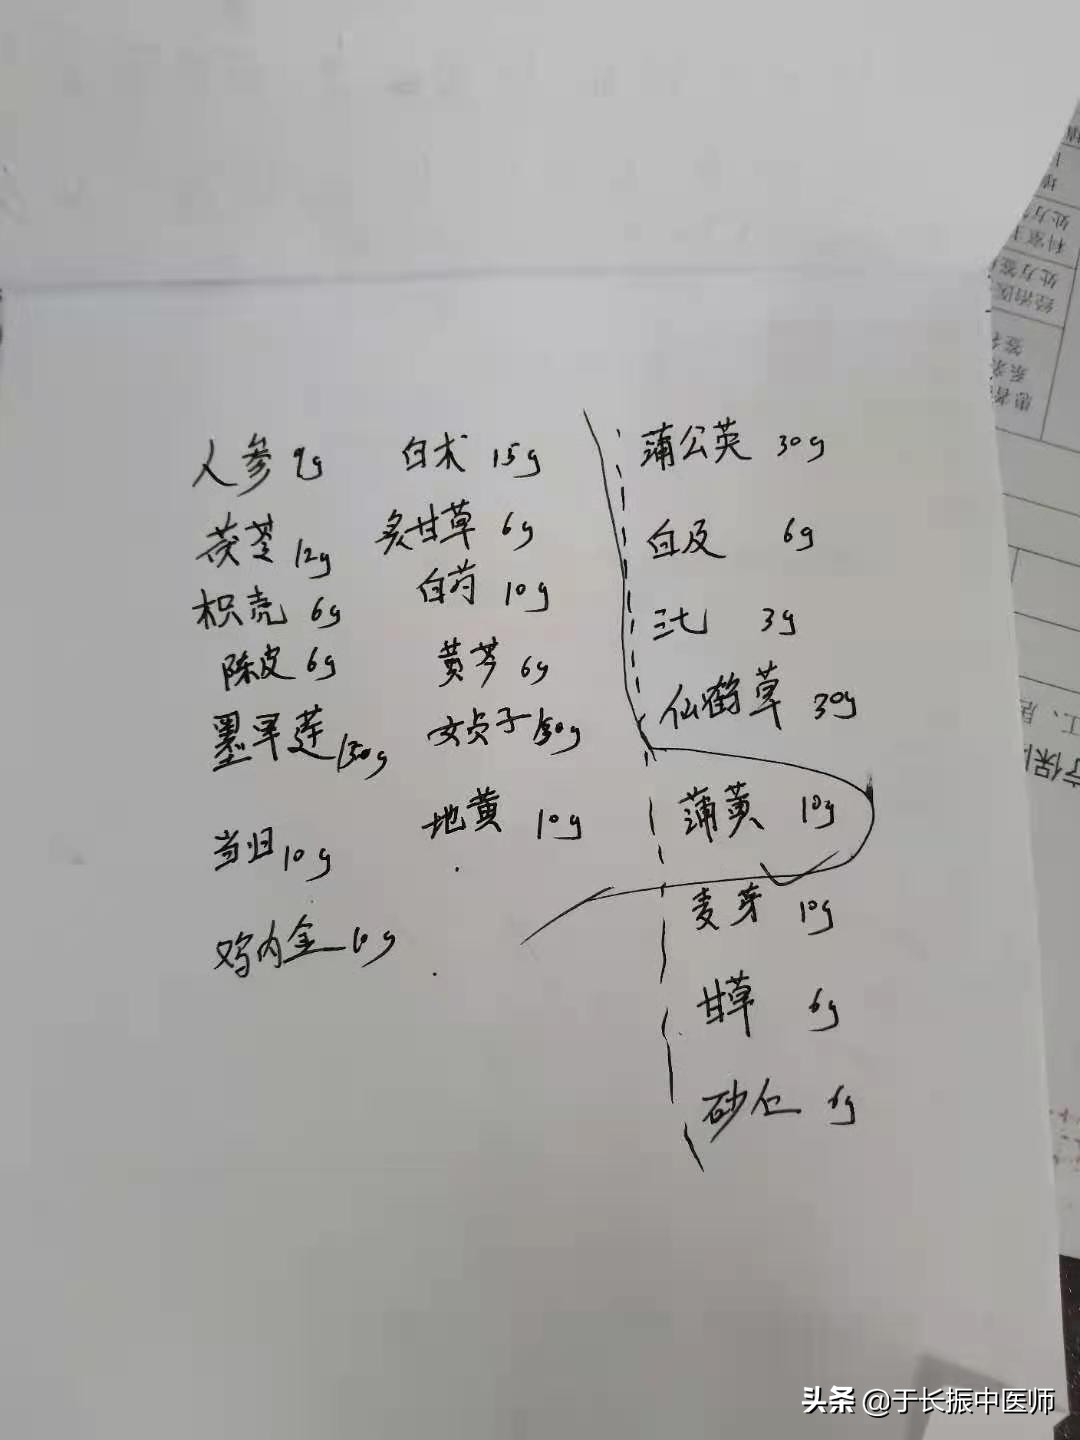 人参 9g 白术 15g
茯苓 12g 炙甘草 6g
枳壳 6g 白芍 10g
陈皮 6g 黄芩 6g
墨旱莲 女贞子
当归 10g 地黄 10g
鸡内金
蒲公英 30g
白及 6g
三七 3g
仙鹤草 30g
蒲黄 10g
麦芽 10g
甘草 6g
砂仁 6g
患者
签名
经治医
处方签
科室主
处方
头条 @于长振中医师